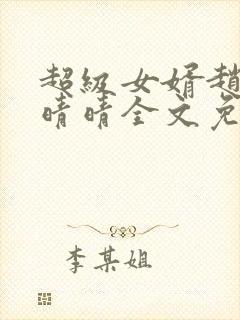 超级女婿趙
晴晴全文免
李某姐